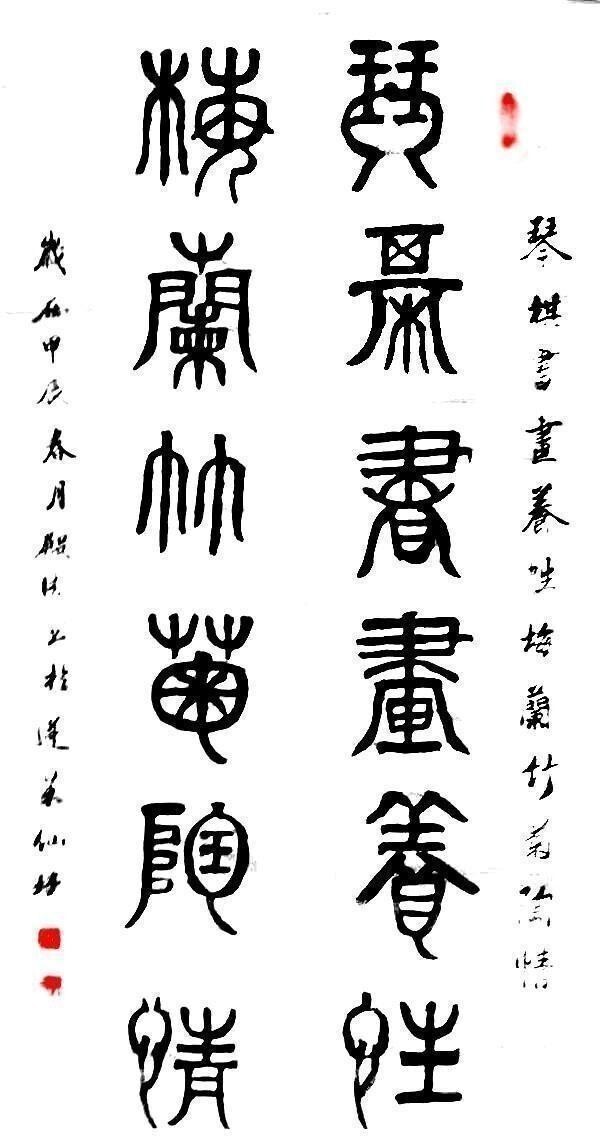 琴棋書畫養性梅蘭竹菊陶情
琴棋書畫養性
梅蘭竹菊陶情
歲在甲辰春月